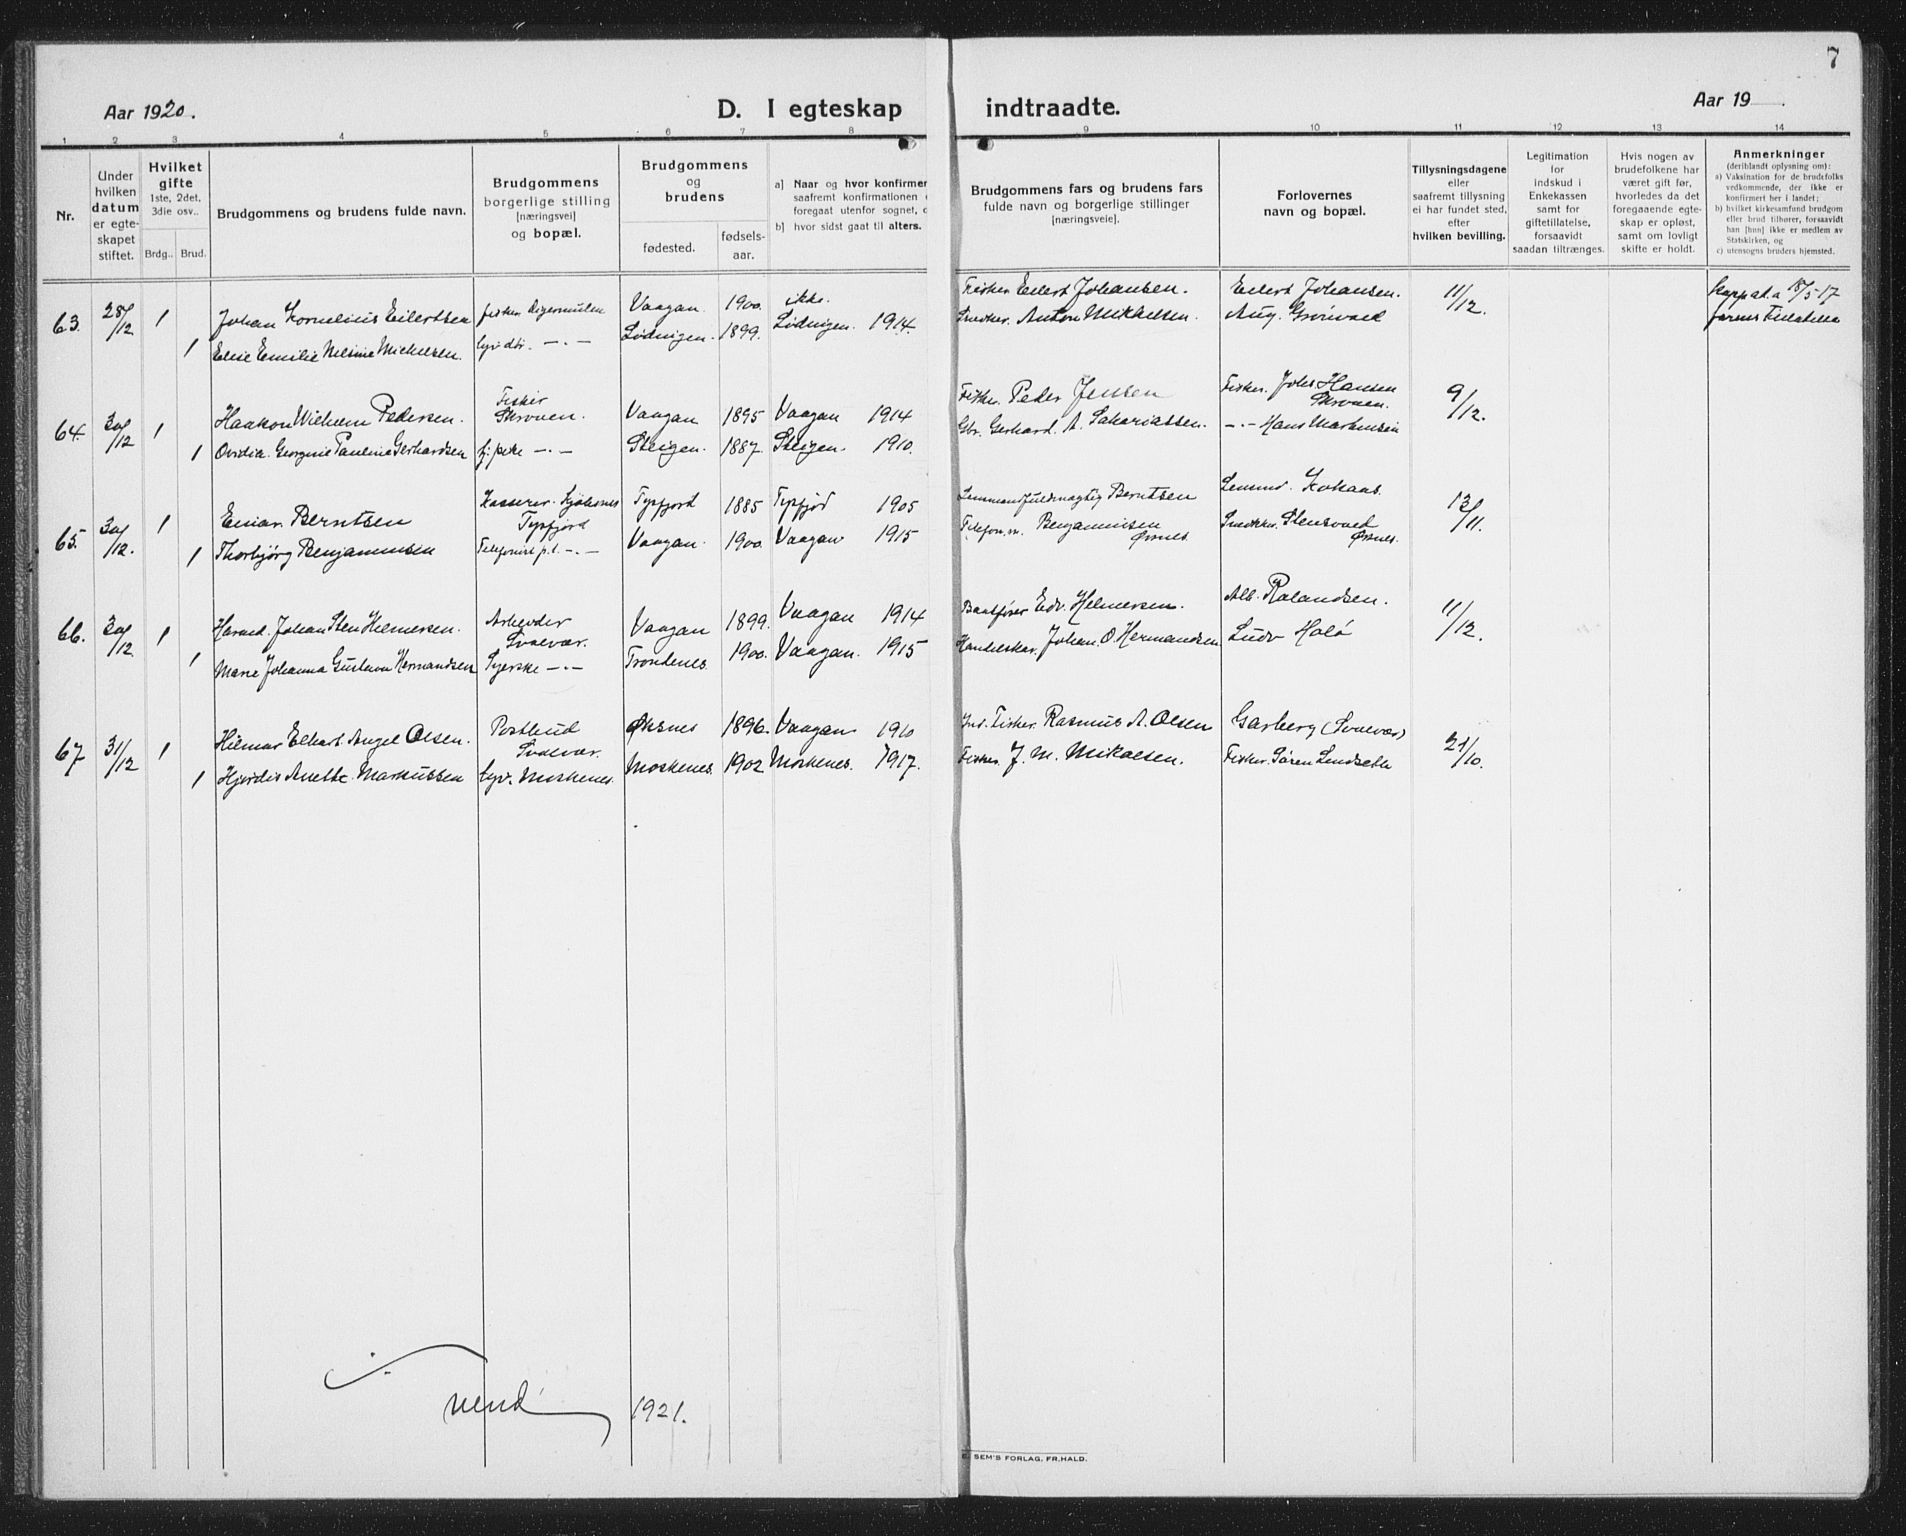 7
Aar 1920.
D. I egteskap indtraadte.
Aar 19
1 2 3 4 5 6 7 8 9 10 11 12 13 14
Nr.
Under hvilken datum er egteskapet stiftet.
Hvilket gifte
1ste, 2det, 3die osv..
Brdg.. Brud.
Brudgommens og brudens fulde navn.
Brudgommens borgerlige stilling [næringsvei] og bopæl.
Brudgommens og brudens
fødested.
fødsels-aar.
a] Naar og hvor konfirmer
saafremt konfirmationen
foregaat utenfor sognet,
b] hvor sidst gaat til alters.
Brudgommens fars og brudens fars
fulde navn og borgerlige stillinger
[næringsveie].
Forlovernes
navn og bopæl.
Tillysningsdagene
eller
saafremt tillysning
ei har fundet sted,
efter
hvilken bevilling.
Legitimation
for
indskud i
Enkekassen
samt for
giftetillatelse,
forsaavidt
saadan tiltrænges.
Hvis nogen av
brudefolkene har
været gift før,
hvorledes da det
foregaaende egte-
skap er opløst,
samt om lovligt
skifte er holdt.
Anmerkninger
(deriblandt oplysning om):
a) Vaksination for de brudefolks
vedkommende, der ikke er
konfirmert her i landet;
b) hvilket kirkesamfund brudgom
eller brud tilhører, forsaavidt
han [hun] ikke er medlem av
Statskirken, og
c) utensogns bruders hjemsted.
63. 28/12 1 Johan Kornelius Eilertsen fisker Digermulen Vaagan 1900. ikke. Fisker Eilert Johansen. Eilert Johansen. 11/12. 18/5 17
1 Elise Emilie Nelsine Michelsen. Lødingen. 1899. Lødingen. 1914. Snedker. Anton Mikkelsen. Aug. Grönvold
64. 30/12 1 Haakon Wilhelm Pedersen. Fisker Skroven. Vaagan 1895 Vaagan 1914 Fisker. Peder Jensen Fisker. Johs. Hansen Skroven. 9/12.
1 Ovidia. Georgine Pauline Gerhardsen — " — Steigen. 1887. Steigen. 1910. Gbr. Gerhard. A. Sakariassen. — " — Hans Martinsen
65. 30/12. 1 Einar Berntsen Kasserer. Tysfjord Tysfjord 1885 Tysfjord 1905 Lensmandfuldmægtig Berntsen Lensmd. 13/11.
1 Thorbjørg Benjaminsen Telefonist p.t. — " — Vaagan. 1900. Vaagan 1915 Telefon.m. Benjaminsen Ørsnes. Snedker. Stensvold Ørsnes.
66. 30/12 1 Harald. Johan Sten Helmersen. Arbeider Svolvær. Vaagan 1899. Vaagan 1914 Edv. Helmersen. Alb. Rolandsen. 11/12.
1 Marie Johanna Gustava Hermandsen Syerske — " — Trondenes. 1900. Vaagan. 1915 Handelskar. Johan. O. Hermandsen. Ludv Holø
67. 31/12 1 Hilmar Elhart Angel Olsen. Postbud Svolvær. Øksnes 1896. Vaagan 1910 Ind. Fisker. Rasmus A. Olsen Garberg (Svolvær) 21/10.
1 Hjørdis Anette Markussen Moskenes. Moskenes. 1902 Moskenes. 1917. Fisker. J. M. Mikalsen. Fisker. Sören Lindseth
vend 1921.
SEM'S FORLAG, FR.HALD.